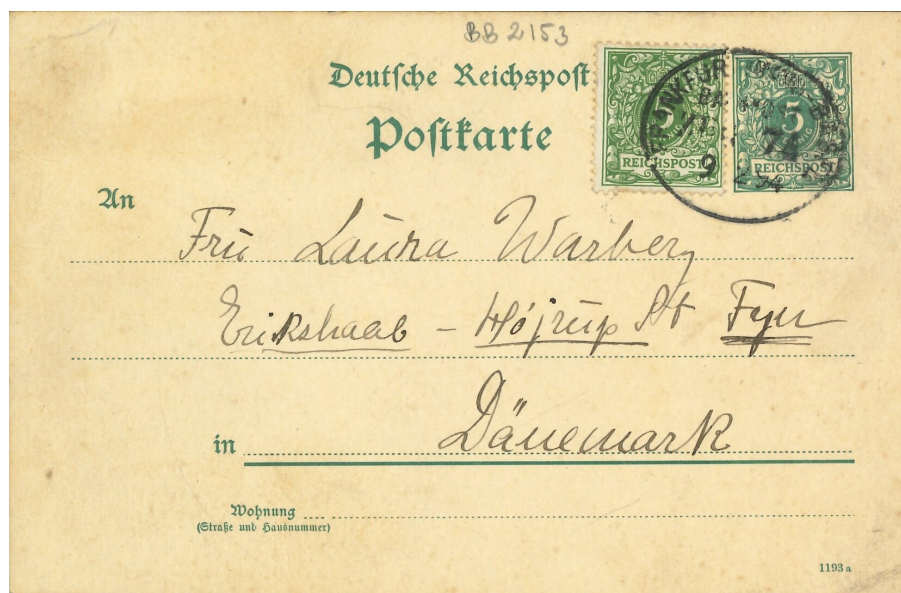 BB 2153
Deutsche Reichspost
Postkarte
5
REICHSPOST
5
REICHSPOST
9 2 94
An
Fru Laura Warberg
Erikshaab - Højrup St Fyn
in Dänemark
Wohnung
(Straße und Hausnummer)
1193 a